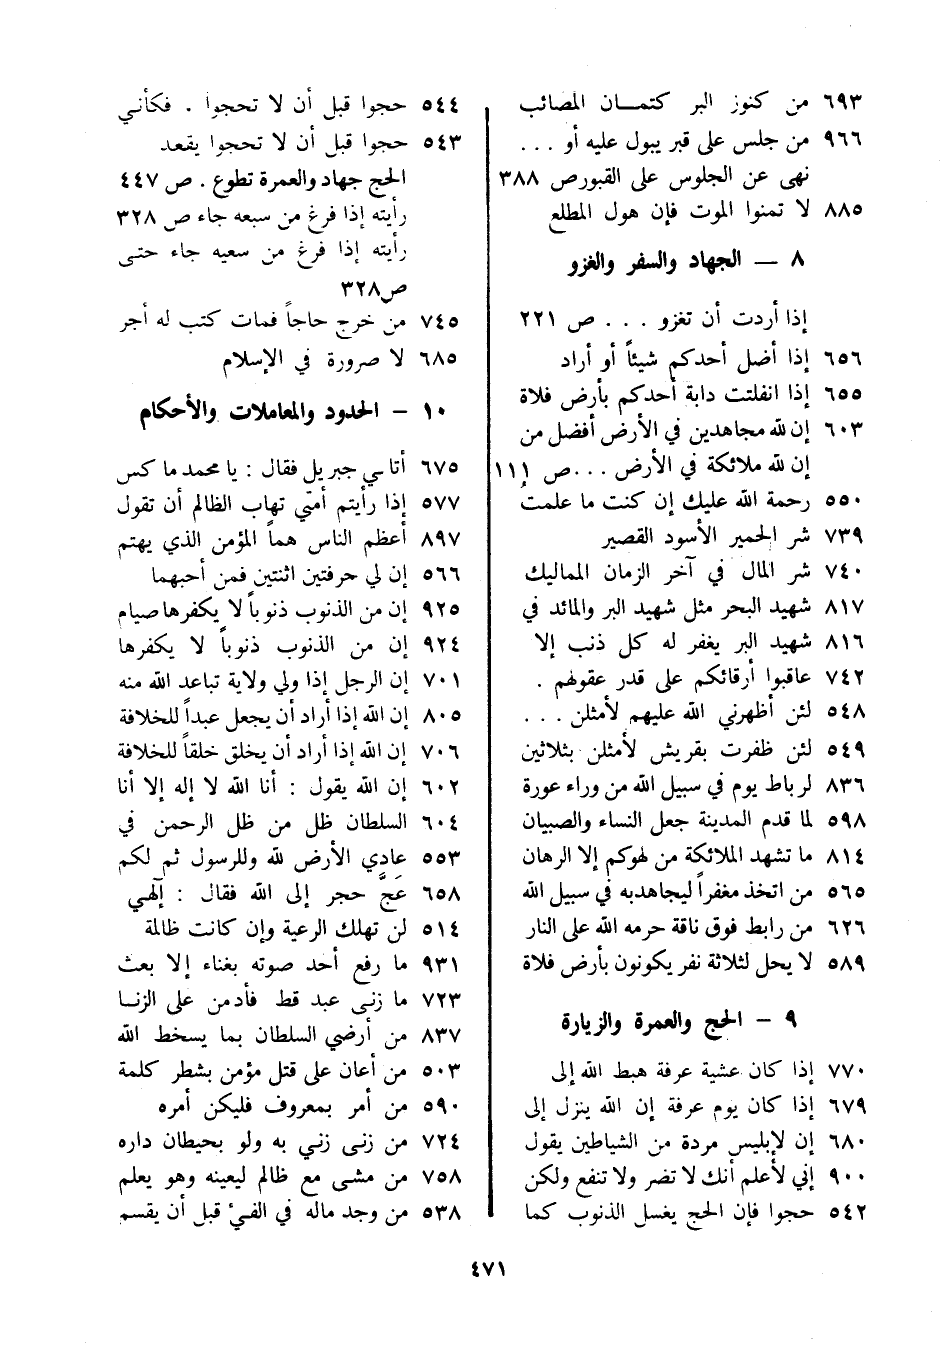 ٦٩٣ من كنوز البر كتمـــان المصائب
٩٦٦ من جلس على قبر يبول عليه أو ...
نهى عن الجلوس على القبورص ٣٨٨
٨٨٥ لا تمنوا الموت فإن هول المطلع
٨ — الجهاد والسفر والغزو
إذا أردت أن تغزو ... ص ٢٢١
٦٥٦ إذا أضل أحدكم شيئاً أو أراد
٦٥٥ إذا انفلتت دابة أحدكم بأرض فلاة
٦٠٣ إن لله مجاهدين في الأرض أفضل من
إن لله ملائكة في الأرض ...ص ١١١
٥٥٠ رحمة الله عليك إن كنت ما علمت
٧٣٩ شر الحمير الأسود القصير
٧٤٠ شر المال في آخر الزمان المماليك
٨١٧ شهيد البحر مثل شهيد البر والمائد في
٨١٦ شهيد البر يغفر له كل ذنب إلا
٧٤٢ عاقبوا أرقائكم على قدر عقولهم .
٥٤٨ لئن أظهرني الله عليهم لأمثلن ...
٥٤٩ لئن ظفرت بقريش لأمثلن بثلاثين
٨٣٦ لرباط يوم في سبيل الله من وراء عورة
٥٩٨ لما قدم المدينة جعل النساء والصبيان
٨١٤ ما تشهد الملائكة من لهوكم إلا الرهان
٥٦٥ من اتخذ مغفراً ليجاهدبه في سبيل الله
٦٢٦ من رابط فوق ناقة حرمه الله على النار
٥٨٩ لا يحل لثلاثة نفر يكونون بأرض فلاة
٩ – الحج والعمرة والزيارة
٧٧٠ إذا كان عشية عرفة هبط الله إلى
٦٧٩ إذا كان يوم عرفة إن الله ينزل إلى
٦٨٠ إن لإبليس مردة من الشياطين يقول
٩٠٠ إني لأعلم أنك لا تضر ولا تنفع ولكن
٥٤٢ حجوا فإن الحج يغسل الذنوب كما
٥٤٤ حجوا قبل أن لا تحجوا . فكأني
٥٤٣ حجوا قبل أن لا تحجوا يقعد
الحج جهاد والعمرة تطوع . ص ٤٤٧
رأيته إذا فرغ من سبعه جاء ص ٣٢٨
رأيته إذا فرغ من سعيه جاء حتى
ص٣٢٨
٧٤٥ من خرج حاجاً فمات كتب له أجر
٦٨٥ لا صرورة في الإسلام
١٠ – الحدود والمعاملات والأحكام
٦٧٥ أتاني جبريل فقال : يا محمد ما كس
٥٧٧ إذا رأيتم أمتي تهاب الظالم أن تقول
٨٩٧ أعظم الناس هماً المؤمن الذي يهتم
٥٦٦ إن لي حرفتين اثنتين فمن أحبهما
٩٢٥ إن من الذنوب ذنوباً لا يكفرها صيام
٩٢٤ إن من الذنوب ذنوباً لا يكفرها
٧٠١ إن الرجل إذا ولي ولاية تباعد الله منه
٨٠٥ إن الله إذا أراد أن يجعل عبداً للخلافة
٧٠٦ إن الله إذا أراد أن يخلق خلقاً للخلافة
٦٠٢ إن الله يقول : أنا الله لا إله إلا أنا
٦٠٤ السلطان ظل من ظل الرحمن في
٥٥٣ عادي الأرض لله وللرسول ثم لكم
٦٥٨ عَجَّ حجر إلى الله فقال : إلهي
٥١٤ لن تهلك الرعية وإن كانت ظالمة
٩٣١ ما رفع أحد صوته بغناء إلا بعث
٧٢٣ ما زنى عبد قط فأدمن على الزنـا
٨٣٧ من أرضي السلطان بما يسخط الله
٥٠٣ من أعان على قتل مؤمن بشطر كلمة
٥٩٠ من أمر بمعروف فليكن أمره
٧٢٤ من زنى زني به ولو بحيطان داره
٧٥٨ من مشى مع ظالم ليعينه وهو يعلم
٥٣٨ من وجد ماله في الفيء قبل أن يقسم
٤٧١